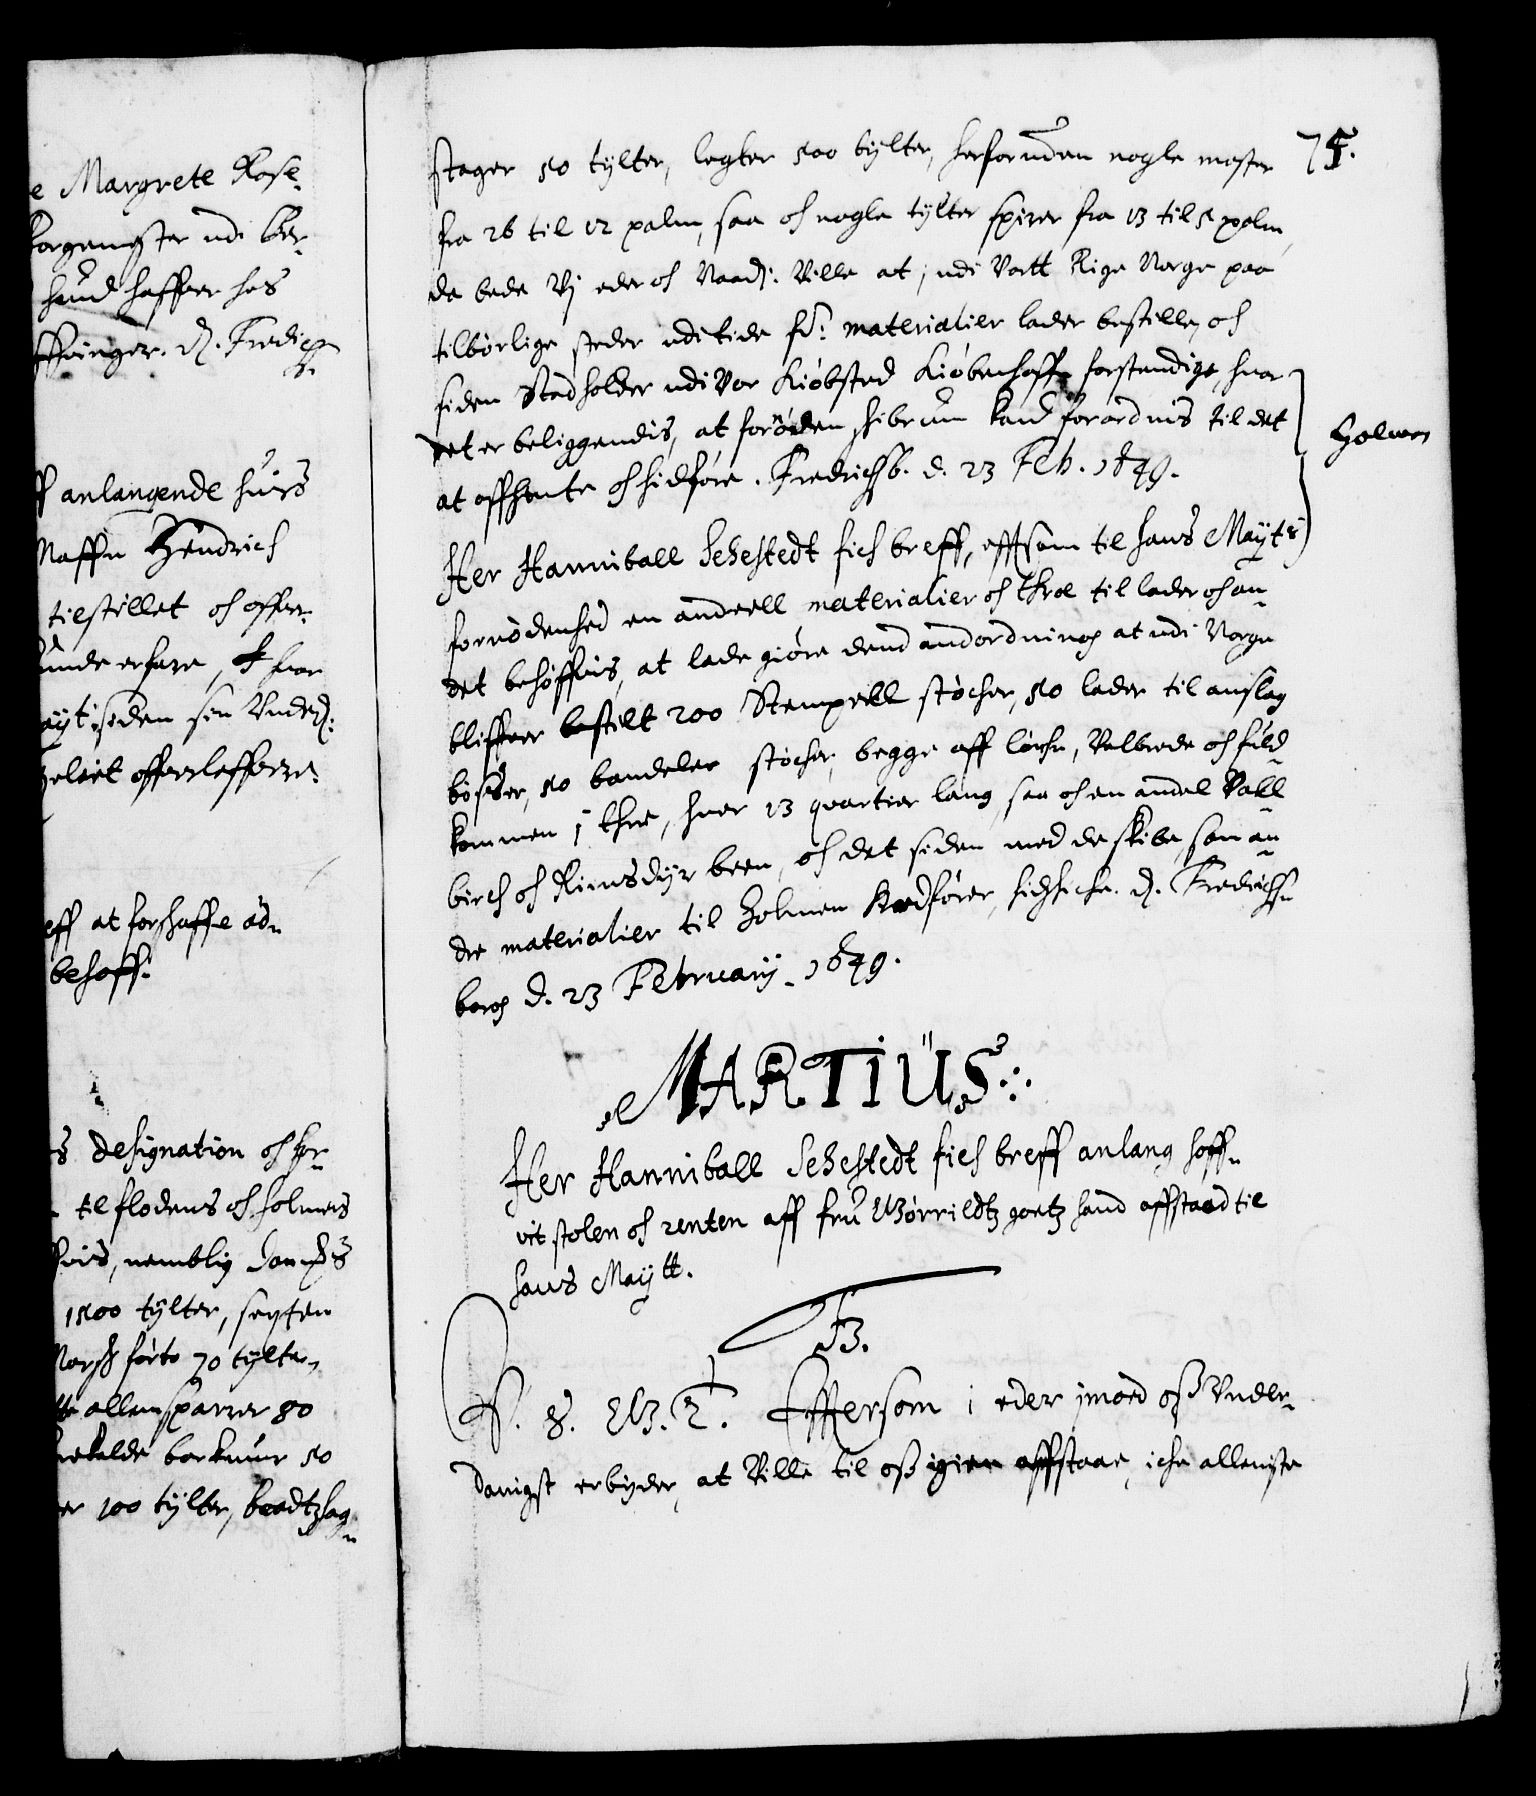 e Margrete Rose¬
borgemester udi Ber¬
hand haffver hos
ffvinger. d. Fredich¬
b.
ff anlangende huis
Naffn Hendrich
tilstillet oc offver¬
unde erfare, I hvor
ayt siden sin Under.
gelset offverleffvere.
eff at forskaffe ad¬
behoff.
s designation oc for¬
til flodens oc holmens
ffvis, nemblig
1500 tylter, 
Norsk 70 tylter,
allen sparrer 80
50
er 100 tylter, baadtzhag¬
75.
stager 50 tylter, legter 500 tylter, herforuden nogle master
fra 26 til 12 palm, saa oc nogle tylter spirer fra 13 til 5 palm,
da bede Vi eder oc Naadj: Ville at i udi Vortt Rige Norge paa
tilbørlige steder udi tide for: materialier lader bestille, oc
siden Stadholder udi Vor Kiøbsted Kiøbenhaffn forstendige, hvor
det er beliggendis, at forøden skibrum kand forordnis til det
at affhente oc hidføre. Fredrichsb. d. 23 Feb. 1649.
Holmen
Her Hanniball Sehestedt fick breff, efftsom til hans Maytz
fornødenhed en andeell materialier oc thræ til lader oc an¬
det behøffvis, at lade giøre dend andordning at udi Norge
bliffver bestilt 200 Stempell støcher, 50 lader til anslag
bøsser, 50 bandeler støcher, begge aff lønn, Velbrede oc fuld¬
kommen i thræ, hver 13 quartier lang, saa oc en andel Vall¬
birch oc Riinsdyr been, oc det siden med de skibe, som an¬
dre materialier til Holmen hidfører, hidskiche. d. Fredrichs¬
borg d. 23 February. 1649.
MARTIUS
Her Hanniball Sehestedt fich breff anlang hoff¬
vit stolen oc renten aff fru Gørrildtz goetz hand affstaad til
hans Maytt.
F3.
C. F. G. W. T. Effersom i eder imoed oss Under¬
danigst erbyder, at Ville til oss igien affstaae, iche alleniste